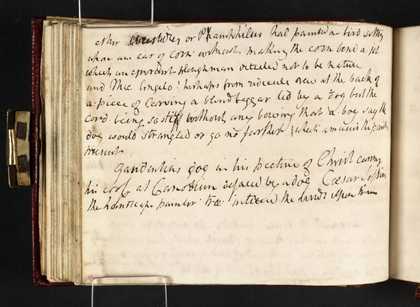 other creatures or Pamphilus had painted a bird sitting
upon an ear of Corn without making the corn bend a jot
which an ignorant Ploughman revealed not to be nature
and Mic Angelo perhaps from ridicule drew at the back of
a piece of Carving a blind beggar led by a Dog but the
cord being so stiff without any bowing that a boy says the
dog would strangled or go no farther which makes the
Gaudentius dog in his picture of Christ carrying
his cross at defaced by a dog Caesar
the landscape painter to the Lands upon him